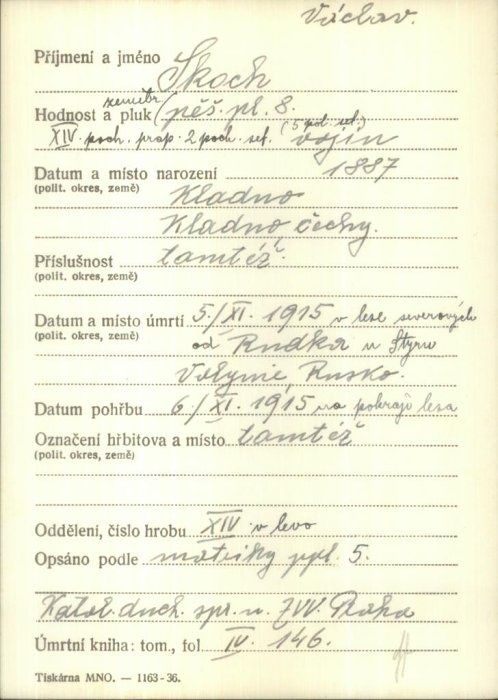 Václav.
Příjmení a jméno Škoch
Hodnost a pluk (zeměbr. pěš. pl. 8.
XIV. poch. prap. 2 poch. set. (5 pol. set.) vojín
Datum a místo narození 1887
(polit. okres, země) Kladno
Kladno, čechy.
Příslušnost tamtéž.
(polit. okres, země)
Datum a místo úmrtí 5./XI. 1915 v lese severových.
(polit. okres, země) od Rudka u Styru
Volynie, Rusko.
Datum pohřbu 6./XI. 1915 na pokraji lesa
Označení hřbitova a místo tamtéž
(polit. okres, země)
Oddělení, číslo hrobu XIV v levo
Opsáno podle matriky ppl. 5.
Katol. duch. spr. u ZVV. Praha
Úmrtní kniha: tom., fol. IV. 146.
Tiskárna MNO. — 1163-36.